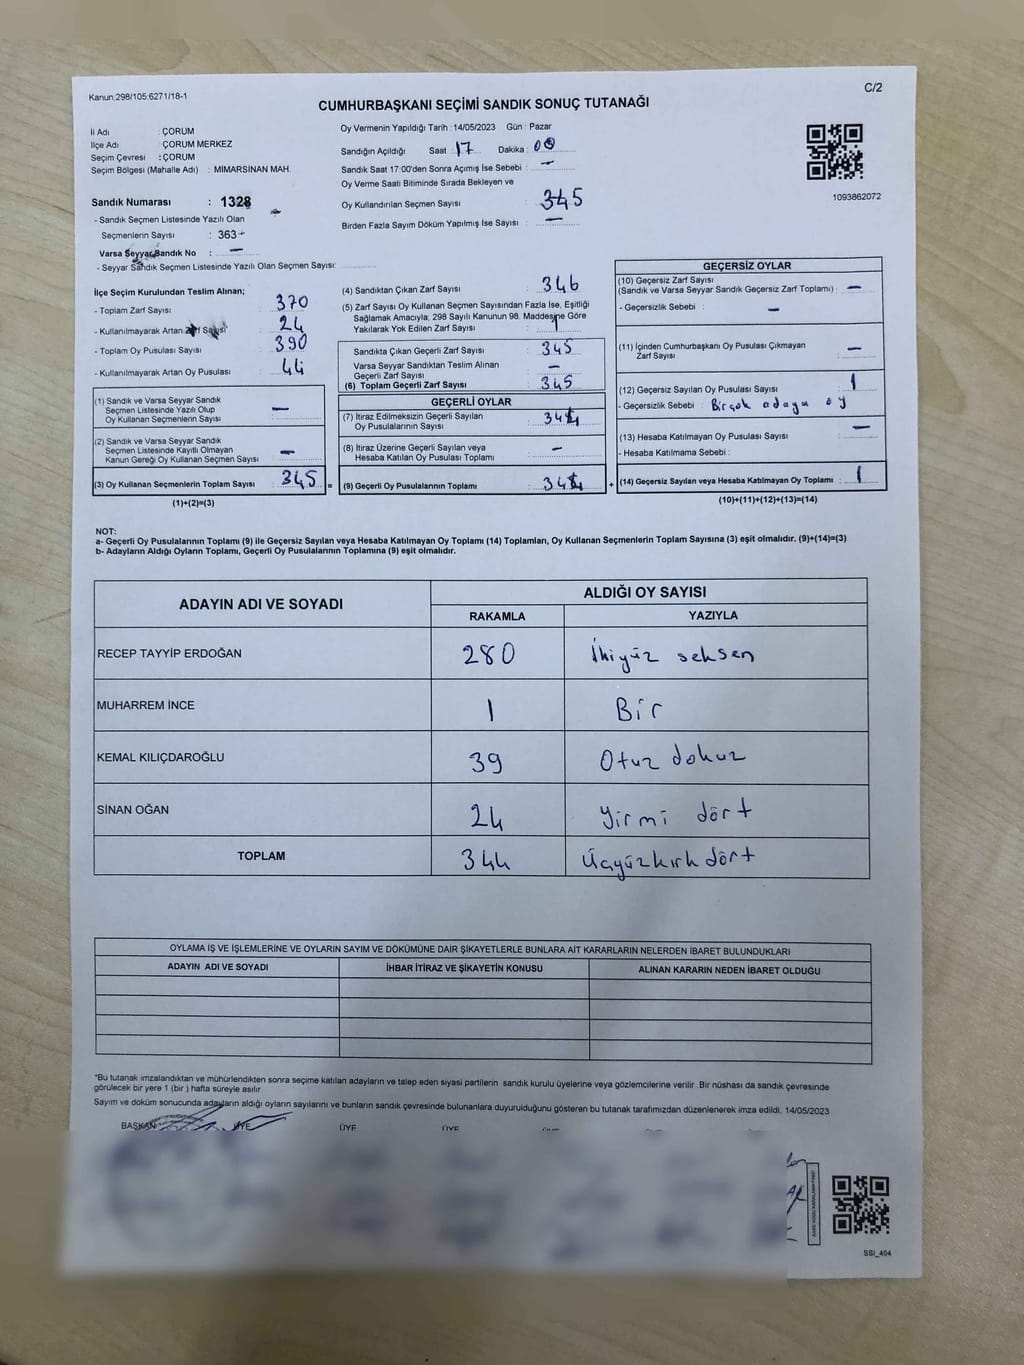 Kanun:298/105:6271/18-1
C/2
CUMHURBAŞKANI SEÇİMİ SANDIK SONUÇ TUTANAĞI
İl Adı : ÇORUM
İlçe Adı : ÇORUM MERKEZ
Seçim Çevresi : ÇORUM
Seçim Bölgesi (Mahalle Adı) : MİMARSİNAN MAH.
Sandık Numarası : 1328
- Sandık Seçmen Listesinde Yazılı Olan
Seçmenlerin Sayısı : 363
Varsa Seyyar Sandık No : —
- Seyyar Sandık Seçmen Listesinde Yazılı Olan Seçmen Sayısı:
Oy Vermenin Yapıldığı Tarih : 14/05/2023 Gün : Pazar
Sandığın Açıldığı Saat : 17 Dakika : 00
Sandık Saat 17:00'den Sonra Açımış İse Sebebi : —
Oy Verme Saati Bitiminde Sırada Bekleyen ve
Oy Kullandırılan Seçmen Sayısı : 345
Birden Fazla Sayım Döküm Yapılmış İse Sayısı : —
1093862072
İlçe Seçim Kurulundan Teslim Alınan;
- Toplam Zarf Sayısı : 370
- Kullanılmayarak Artan Zarf Sayısı : 24
- Toplam Oy Pusulası Sayısı : 390
- Kullanılmayarak Artan Oy Pusulası : 44
(1) Sandık ve Varsa Seyyar Sandık
Seçmen Listesinde Yazılı Olup
Oy Kullanan Seçmenlerin Sayısı : —
(2) Sandık ve Varsa Seyyar Sandık
Seçmen Listesinde Kayıtlı Olmayan
Kanun Gereği Oy Kullanan Seçmen Sayısı : —
(3) Oy Kullanan Seçmenlerin Toplam Sayısı : 345 =
(1)+(2)=(3)
(4) Sandıktan Çıkan Zarf Sayısı : 346
(5) Zarf Sayısı Oy Kullanan Seçmen Sayısından Fazla İse, Eşitliği
Sağlamak Amacıyla; 298 Sayılı Kanunun 98. Maddesine Göre
Yakılarak Yok Edilen Zarf Sayısı : 1
Sandıkta Çıkan Geçerli Zarf Sayısı : 345
Varsa Seyyar Sandıktan Teslim Alınan
Geçerli Zarf Sayısı : —
(6) Toplam Geçerli Zarf Sayısı : 345
GEÇERLİ OYLAR
(7) İtiraz Edilmeksizin Geçerli Sayılan
Oy Pusulasının Sayısı : 344
(8) İtiraz Üzerine Geçerli Sayılan veya
Hesaba Katılan Oy Pusulası Toplamı : —
(9) Geçerli Oy Pusulalarının Toplamı : 344 +
GEÇERSİZ OYLAR
(10) Geçersiz Zarf Sayısı
(Sandık ve Varsa Seyyar Sandık Geçersiz Zarf Toplamı) : —
- Geçersizlik Sebebi : —
(11) İçinden Cumhurbaşkanı Oy Pusulası Çıkmayan
Zarf Sayısı : —
(12) Geçersiz Sayılan Oy Pusulası Sayısı : 1
- Geçersizlik Sebebi : Birçok adaya oy
(13) Hesaba Katılmayan Oy Pusulası Sayısı : —
- Hesaba Katılmama Sebebi :
(14) Geçersiz Sayılan veya Hesaba Katılmayan Oy Toplamı : 1
(10)+(11)+(12)+(13)=(14)
NOT:
a- Geçerli Oy Pusulalarının Toplamı (9) ile Geçersiz Sayılan veya Hesaba Katılmayan Oy Toplamı (14) Toplamları, Oy Kullanan Seçmenlerin Toplam Sayısına (3) eşit olmalıdır. (9)+(14)=(3)
b- Adayların Aldığı Oyların Toplamı, Geçerli Oy Pusulalarının Toplamına (9) eşit olmalıdır.
ADAYIN ADI VE SOYADI
ALDIĞI OY SAYISI
RAKAMLA YAZIYLA
RECEP TAYYİP ERDOĞAN 280 İkiyüz seksen
MUHARREM İNCE 1 Bir
KEMAL KILIÇDAROĞLU 39 Otuz dokuz
SİNAN OĞAN 24 Yirmi dört
TOPLAM 344 Üçyüzkırk dört
OYLAMA İŞ VE İŞLEMLERİNE VE OYLARIN SAYIM VE DÖKÜMÜNE DAİR ŞİKAYETLERLE BUNLARA AİT KARARLARIN NELERDEN İBARET BULUNDUKLARI
ADAYIN ADI VE SOYADI İHBAR İTİRAZ VE ŞİKAYETİN KONUSU ALINAN KARARIN NEDEN İBARET OLDUĞU
*Bu tutanak imzalandıktan ve mühürlendikten sonra seçime katılan adayların ve talep eden siyasi partilerin sandık kurulu üyelerine veya gözlemcilerine verilir. Bir nüshası da sandık çevresinde
görülecek bir yere 1 (bir ) hafta süreyle asılır.
Sayım ve döküm sonucunda adayların aldığı oyların sayılarını ve bunların sandık çevresinde bulunanlara duyurulduğunu gösteren bu tutanak tarafımızdan düzenlenerek imza edildi. 14/05/2023
BAŞKAN ÜYE ÜYE ÜYE
SSI_404